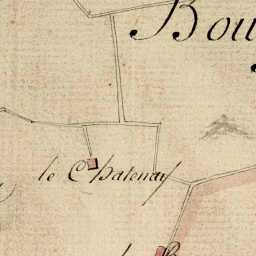 Bou
le Chatenay